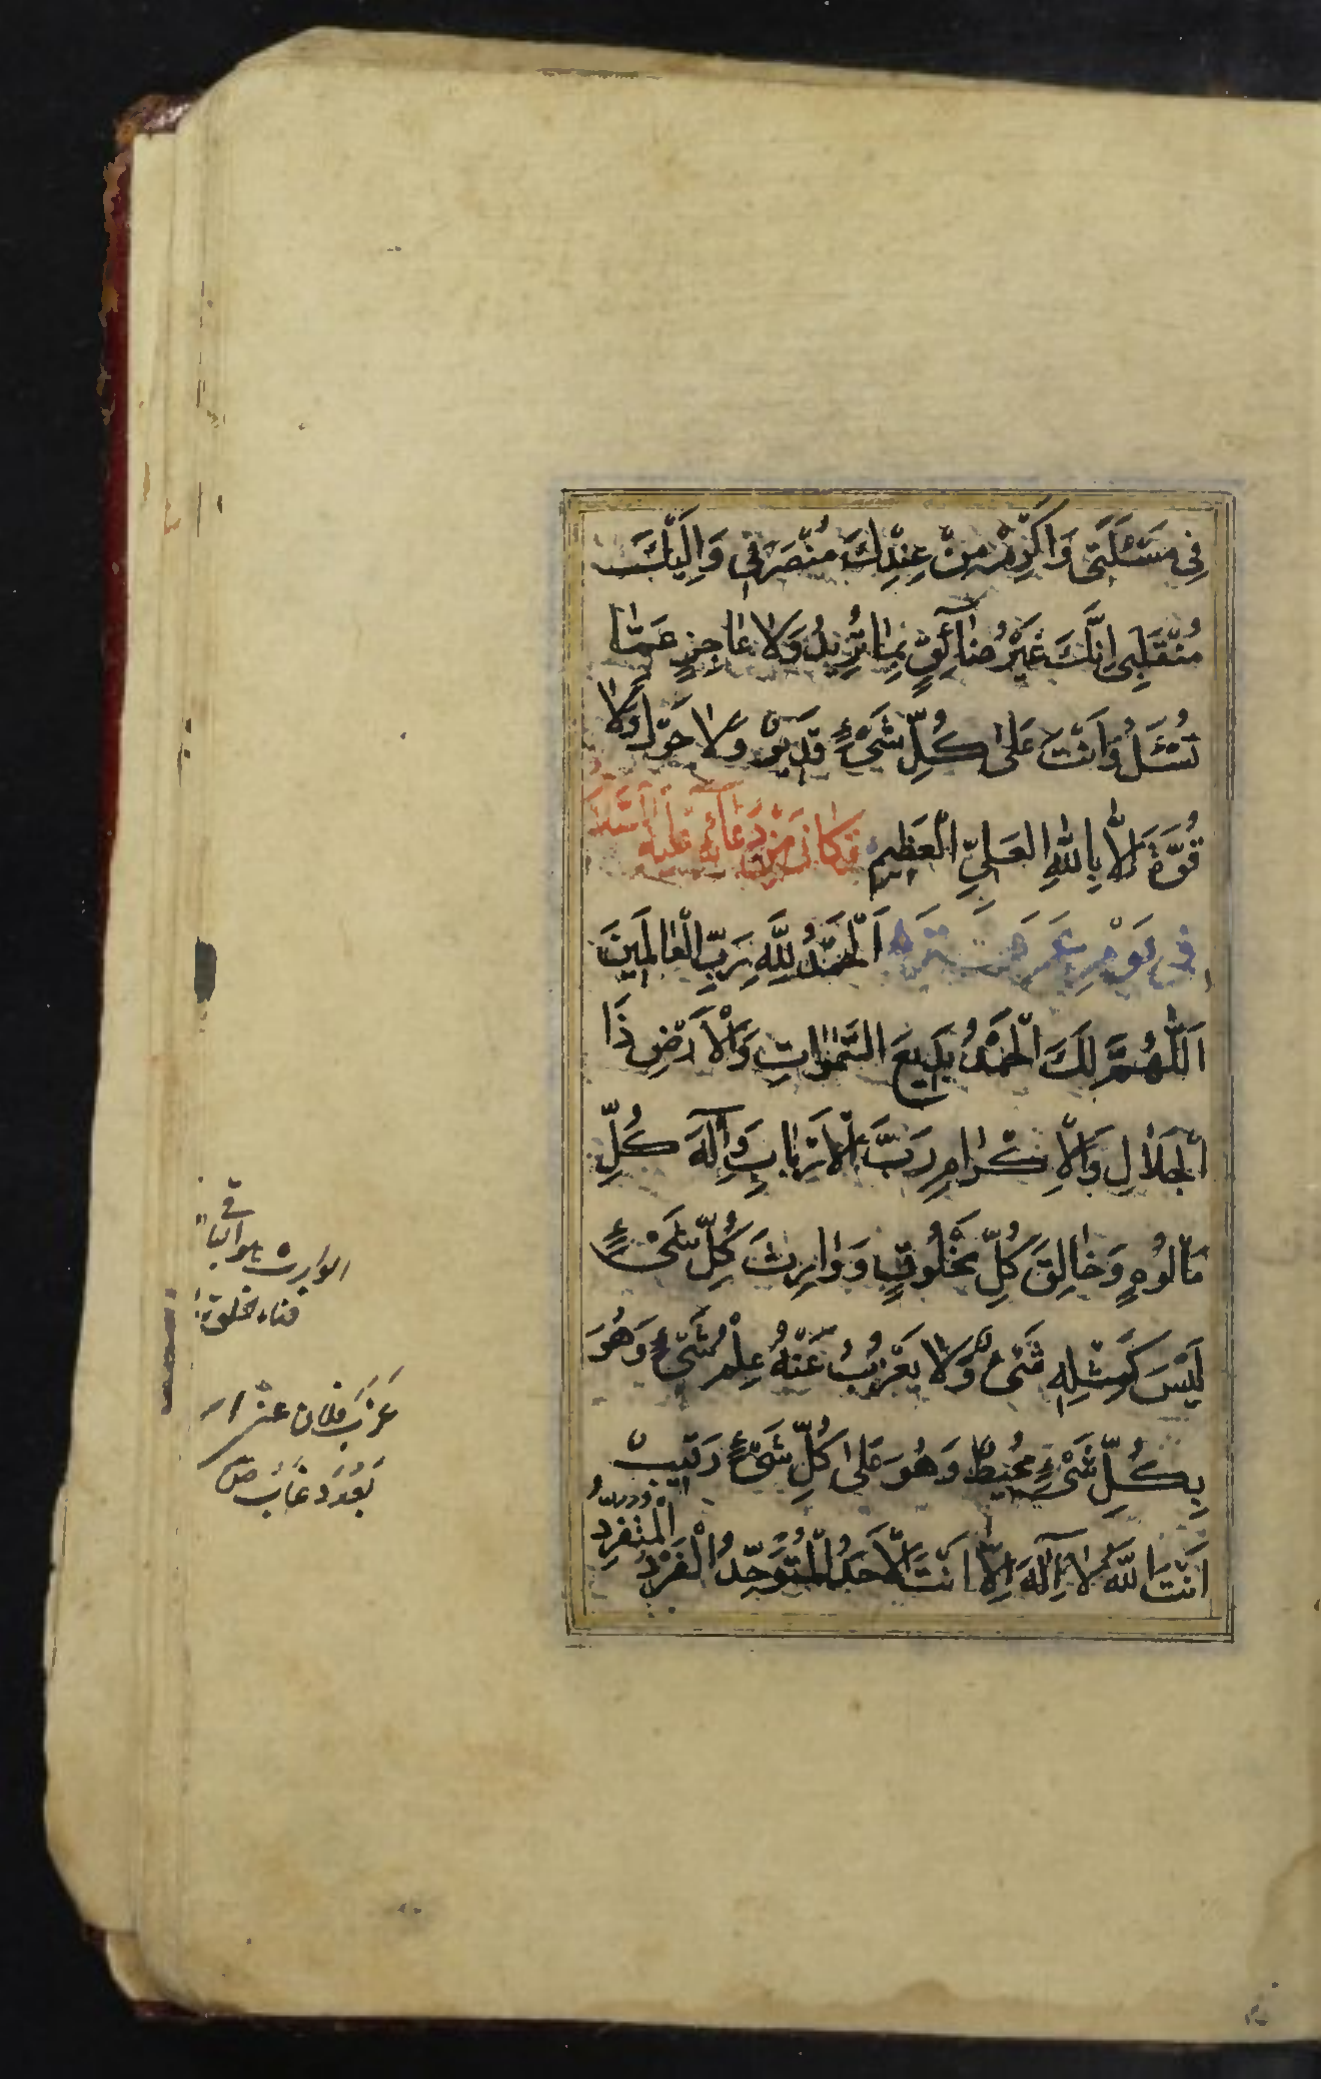 فِي مَسْئَلَتِي وَاَكْرِمْ مِنْ عِنْدِكَ مُنْصَرَفِي وَاِلَيْكَ
مُنْقَلَبِي اِنَّكَ غَيْرُ ضَآئِقٍ بِمَا تُرِيدُ وَلَا عَاجِزٍ عَمَّا
تُسْئَلُ وَاَنْتَ عَلٰى كُلِّ شَيْءٍ قَدِيرٌ وَلَا حَوْلَ وَلَا
قُوَّةَ اِلَّا بِاللّٰهِ الْعَلِيِّ الْعَظِيمِ وَكَانَ مِنْ دُعَآئِهِ عَلَيْهِ السَّلَامُ
فِي يَوْمِ عَرَفَةَ اَلْحَمْدُ لِلّٰهِ رَبِّ الْعَالَمِينَ
اَللّٰهُمَّ لَكَ الْحَمْدُ بَدِيعَ السَّمٰوَاتِ وَالْاَرْضِ ذَا
الْجَلَالِ وَالْاِكْرَامِ رَبَّ الْاَرْبَابِ وَاِلٰهَ كُلِّ
مَاْلُوهٍ وَخَالِقَ كُلِّ مَخْلُوقٍ وَوَارِثَ كُلِّ شَيْءٍ
لَيْسَ كَمِثْلِهِ شَيْءٌ وَلَا يَعْزُبُ عَنْهُ عِلْمُ شَيْءٍ وَهُوَ
بِكُلِّ شَيْءٍ مُحِيطٌ وَهُوَ عَلٰى كُلِّ شَيْءٍ رَقِيبٌ
اَنْتَ اللّٰهُ لَا اِلٰهَ اِلَّا اَنْتَ الْاَحَدُ الْمُتَوَحِّدُ الْفَرْدُ الْمُتَفَرِّدُ
الوارث هو الباقي
فناء الخلق
عَزَبَ فلان عنا
بَعُدَ وَغَابَ ص